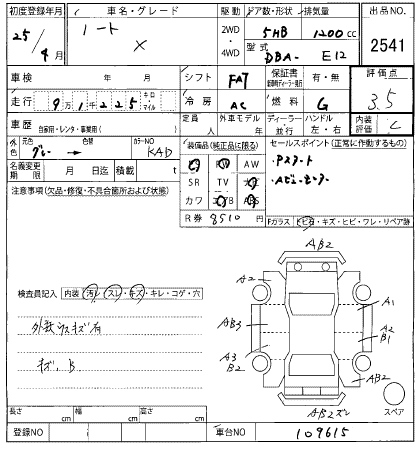 初度登録年月 車名・グレード 駆動 ドア数・形状 排気量 出品NO.
25/4月 ノート X 2WD・4WD 5HB 1200cc 2541
型式 DBA- E12
車検 年 月 シフト FA7 保証書 有・無 評価点
走行 9万1千225 キロ・マイル 冷房 AC 燃料 G 3.5
車歴 自家用・レンタ・事業用( ) 定員 人 外車モデル 年 ディーラー 並行 ハンドル 左・右 内装 C
外色 元色 グレー → 色替 カラーNO KAD 装備品(純正品に限る) セールスポイント(正常に動作するもの)
名義変更期限 月 日迄 積載 t AW
注意事項(欠品・修復・不具合箇所および状態) SR TV
カワ
R券 8510 Fガラス ヒビ石・キズ・ヒビ・ワレ・リペア跡
AB2
A2
A1
検査員記入 内装(汚レ・スレ・キズ・キレ・コゲ・穴)
AB3 A2
B1
外装ウスキズ有
A3
B2
キズ、B AB2
AB2ズレ スペア
長さ cm 幅 cm 高さ cm
登録NO 車台NO 109615